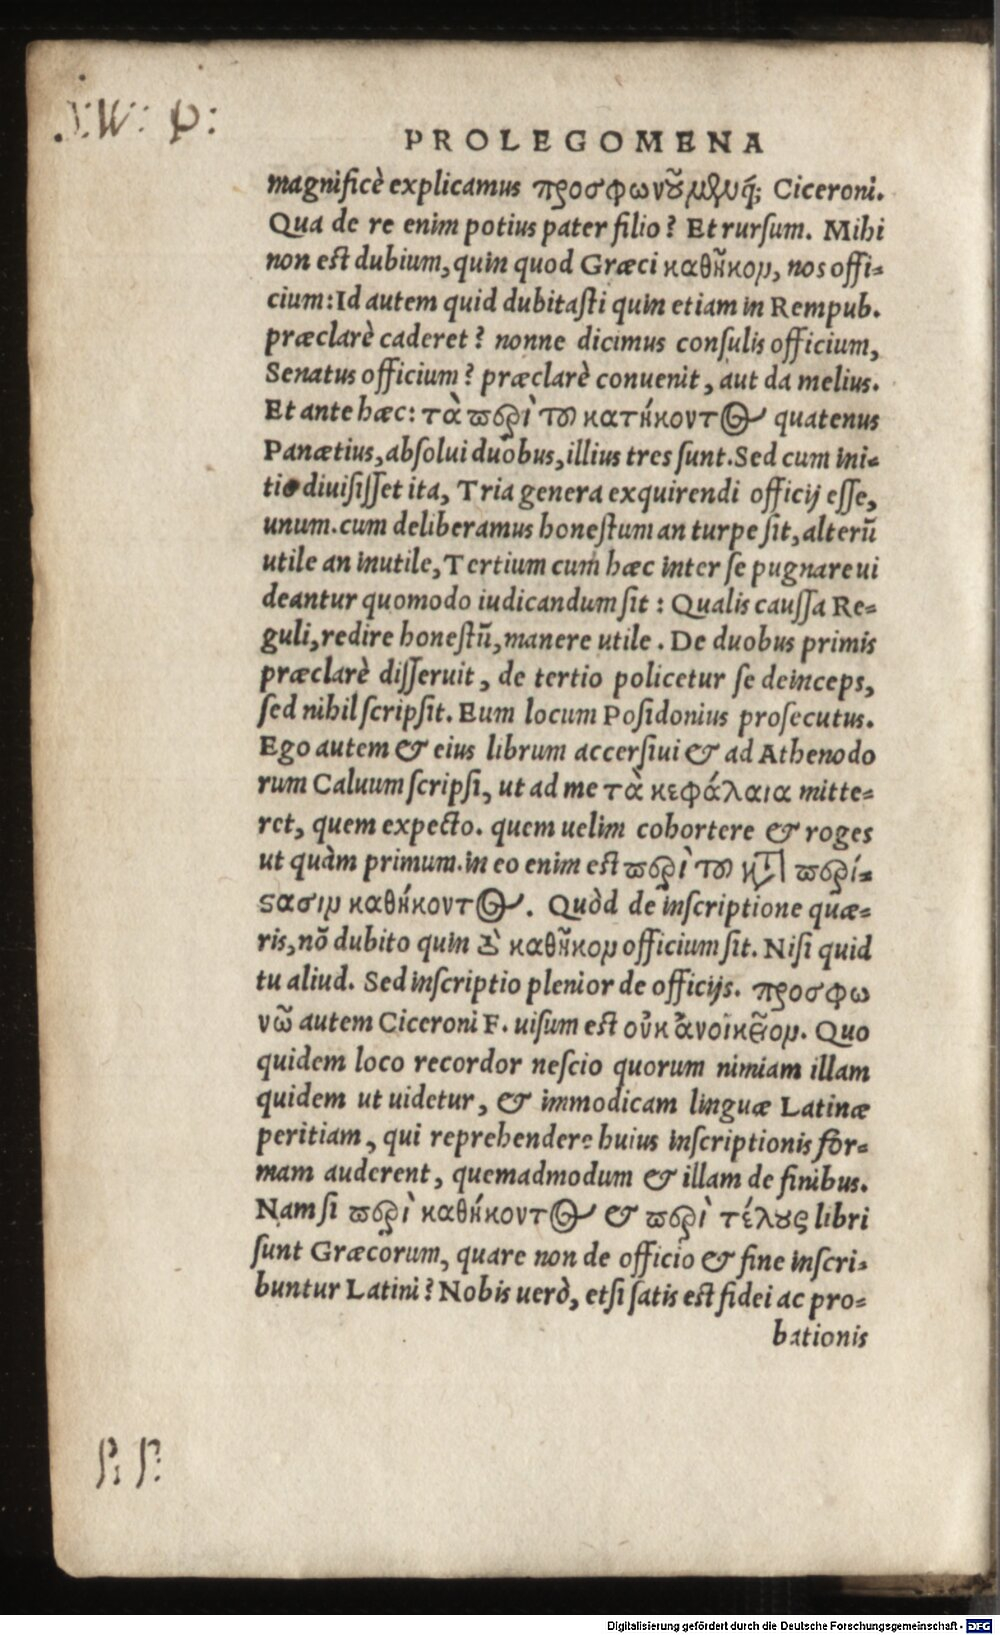 PROLEGOMENA
magnificè explicamus προσφωνοῦμενq́; Ciceroni.
Qua de re enim potius pater filio? Et rurſum. Mihi
non eſt dubium, quin quod Græci καθῆκον, nos offi-
cium: Id autem quid dubitaſti quin etiam in Rempub.
præclarè caderet? nonne dicimus conſulis officium,
Senatus officium? præclarè conuenit, aut da melius.
Et ante hæc: τὰ περὶ τοῦ κατήκοντος quatenus
Panætius, abſolui duobus, illius tres ſunt. Sed cum ini-
tio diuiſiſſet ita, Tria genera exquirendi officij eſſe,
unum. cum deliberamus honeſtum an turpe ſit, alterũ
utile an inutile, Tertium cum hæc inter ſe pugnare ui
deantur quomodo iudicandum ſit: Qualis cauſſa Re-
guli, redire honeſtũ, manere utile. De duobus primis
præclarè diſſeruit, de tertio policetur ſe deinceps,
ſed nihil ſcripſit. Eum locum Poſidonius proſecutus.
Ego autem & eius librum accerſiui & ad Athenodo
rum Caluum ſcripſi, ut ad me τὰ κεφάλαια mitte-
ret, quem expecto. quem uelim cohortere & roges
ut quàm primum. in eo enim eſt περὶ τοῦ κατὰ περί-
ςασιν καθήκοντος. Quòd de inſcriptione quæ-
ris, nõ dubito quin τὸ καθῆκον officium ſit. Niſi quid
tu aliud. Sed inſcriptio plenior de officijs. προσφω
νῶ autem Ciceroni F. uiſum eſt οὐκ ἀνοίκειον. Quo
quidem loco recordor neſcio quorum nimiam illam
quidem ut uidetur, & immodicam linguæ Latinæ
peritiam, qui reprehendere huius inſcriptionis for-
mam auderent, quemadmodum & illam de finibus.
Nam ſi περὶ καθήκοντος & περὶ τέλους libri
ſunt Græcorum, quare non de officio & fine inſcri-
buntur Latini? Nobis uerò, etſi ſatis eſt fidei ac pro-
bationis
Digitalisierung gefördert durch die Deutsche Forschungsgemeinschaft - DFG